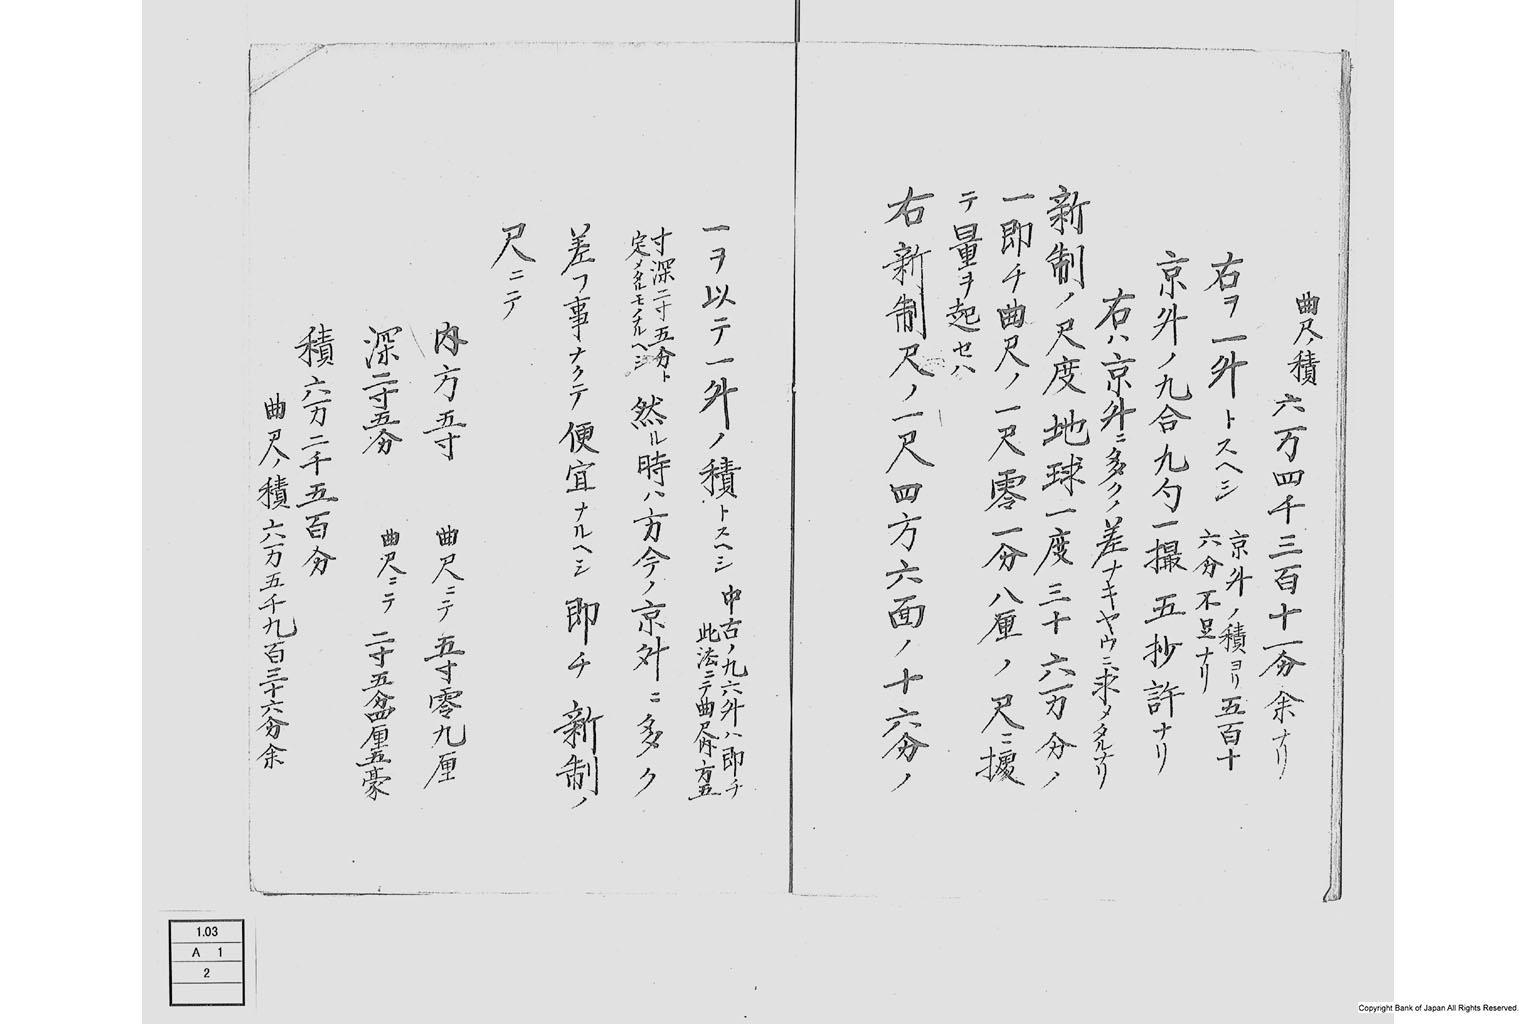 曲尺ノ積六万四千三百十一分余ナリ
右ヲ一升トスヘシ 京升ノ積ヨリ五百十
六分不足ナリ
京升ノ九合九勺一撮五抄許ナリ
右ハ京升ニ多クノ差ナキヤウニ求メタルナリ
新制ノ尺度地球一度三十六万分ノ
一即チ曲尺ノ一尺零一分八厘ノ尺ニ據
テ量ヲ起セハ
右新制尺ノ一尺四方六面ノ十六分ノ
一ヲ以テ一升ノ積トスヘシ 中古ノ九六升ハ即チ
此法ニテ曲尺内方五
寸深二寸五分ト
定メタルモノナルヘシ
然ル時ハ方今ノ京升ニ多ク
差フ事ナクテ便宜ナルヘシ即チ新制ノ
尺ニテ
内方五寸 曲尺ニテ五寸零九厘
深二寸五分 曲尺ニテ二寸五分四厘五豪
積六万二千五百分
曲尺ノ積六万五千九百三十六分余
1.03
A 1
2
Copyright Bank of Japan All Rights Reserved.